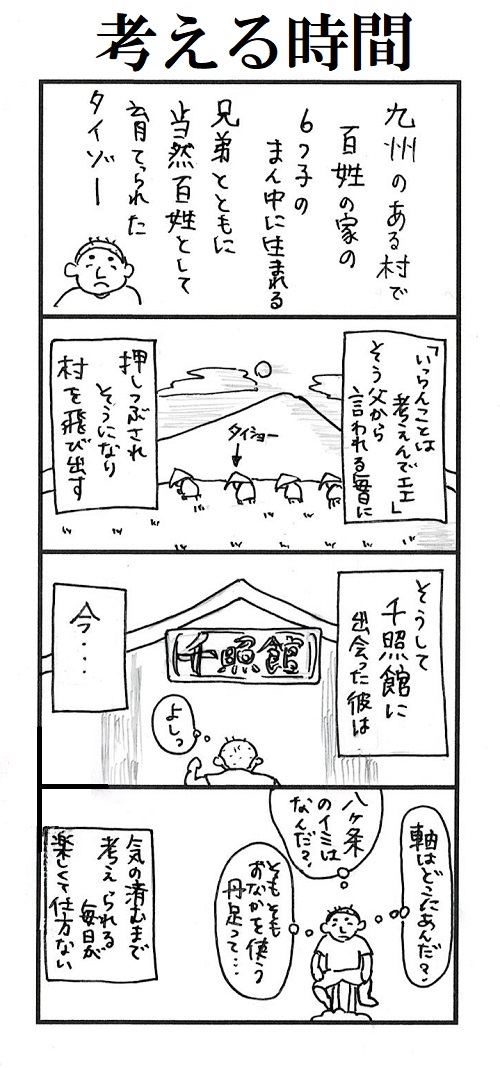 考える時間
九州のある村で
百姓の家の
6つ子の
まん中に生まれる
兄弟とともに
当然百姓として
育てられた
タイゾー
「いらんことは
考えんでエエ」
そう父から
言われる毎日に
タイショー
押しつぶされ
そうになり
村を飛び出す
そうして
千照館に
出会った彼は
千照館
よしっ
今・・・・
軸はどこにあんだ?
八ヶ条
のイミは
なんだ?
そもそも
おなかを使う
丹足って・・・
気の済むまで
考えられる
毎日が
楽しくて仕方ない